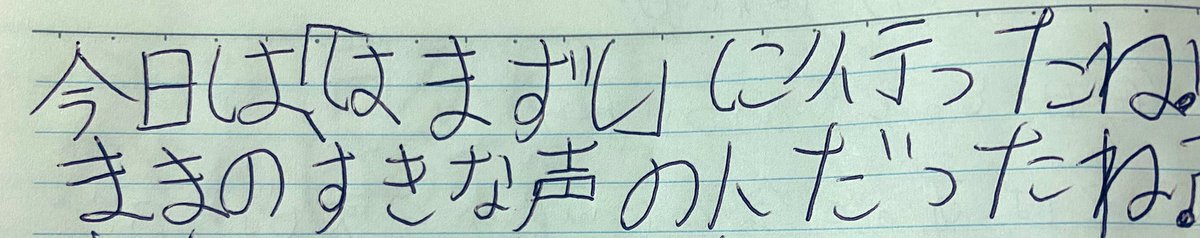 今日は「はまずし」に行ったね♪
ままのすきな声の人だったね♪